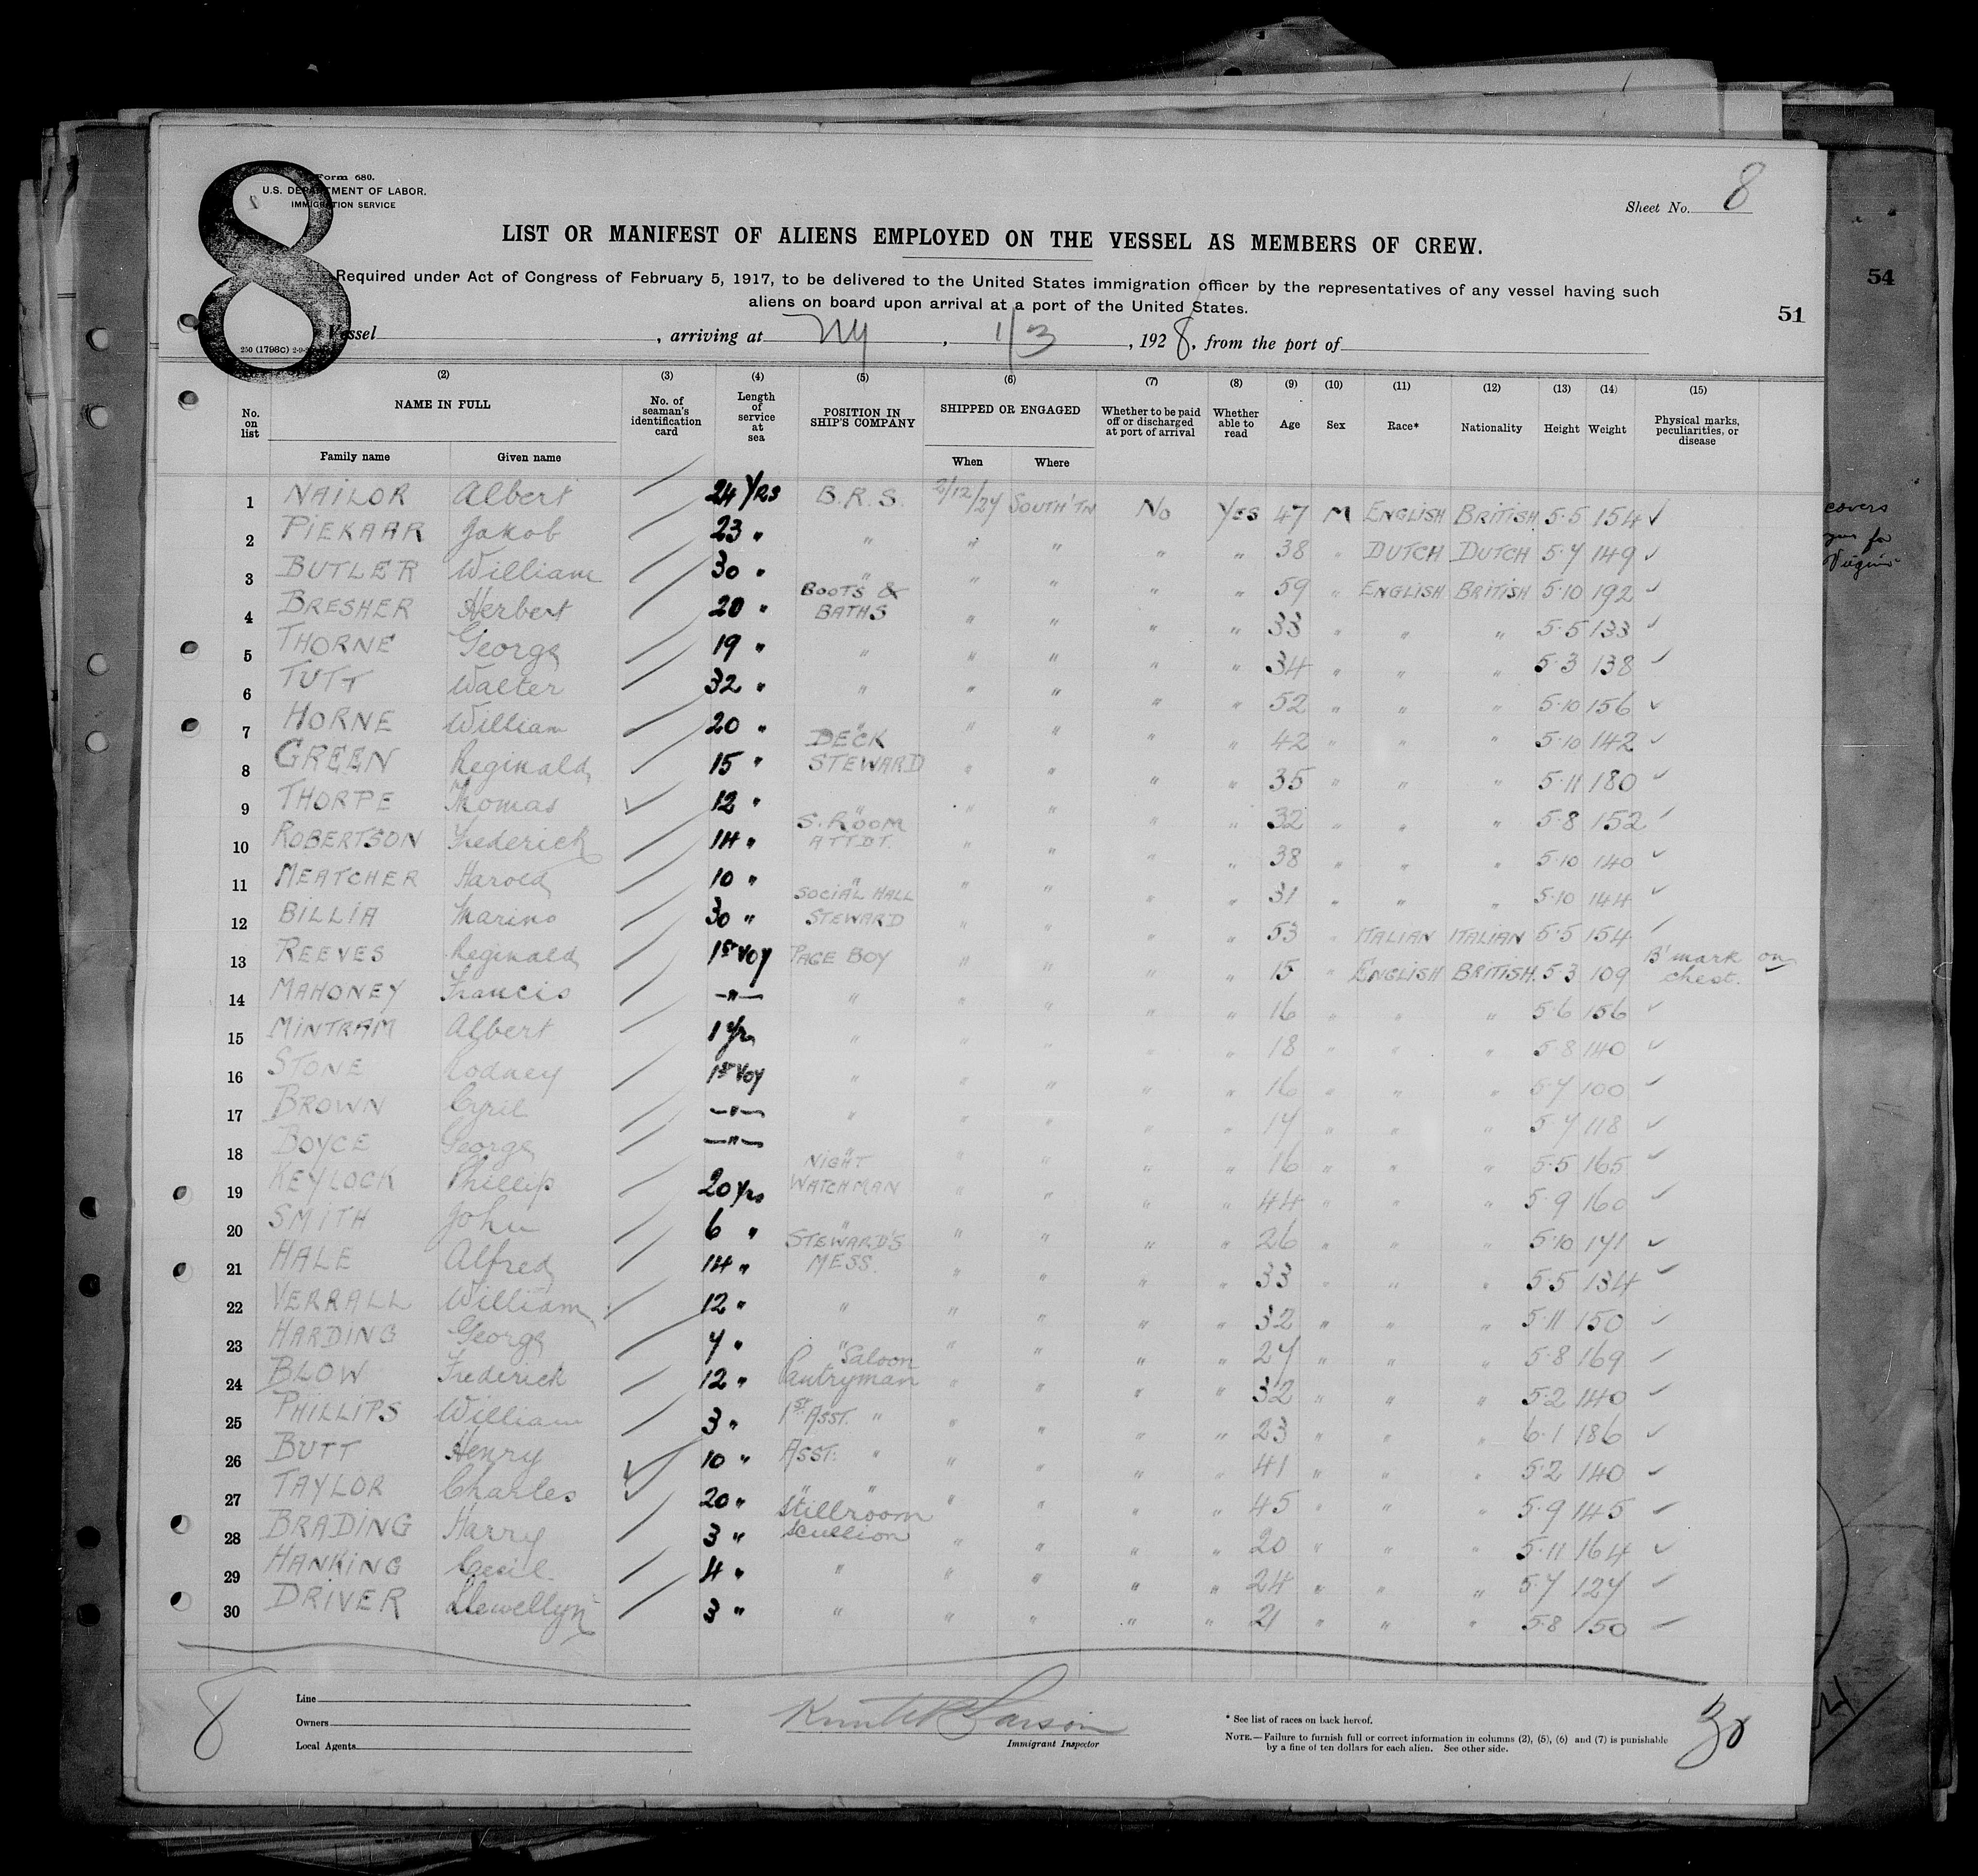 8
Form 680.
U.S. DEPARTMENT OF LABOR.
IMMIGRATION SERVICE
Sheet No. 8
LIST OR MANIFEST OF ALIENS EMPLOYED ON THE VESSEL AS MEMBERS OF CREW.
Required under Act of Congress of February 5, 1917, to be delivered to the United States immigration officer by the representatives of any vessel having such
aliens on board upon arrival at a port of the United States.
54
51
Vessel , arriving at NY , 1/3 , 1928, from the port of
(2) (3) (4) (5) (6) (7) (8) (9) (10) (11) (12) (13) (14) (15)
No. on list NAME IN FULL No. of seaman's identification card Length of service at sea POSITION IN SHIP'S COMPANY SHIPPED OR ENGAGED Whether to be paid off or discharged at port of arrival Whether able to read Age Sex Race* Nationality Height Weight Physical marks, peculiarities, or disease
Family name Given name When Where
1 NAILOR Albert 24 YRS B.R.S. 2/12/27 SOUTH'TN No Yes 47 M ENGLISH BRITISH 5·5 154 ✓
2 PIEKAAR Jakob 23 " " " " " " 38 " DUTCH DUTCH 5·7 149 ✓
3 BUTLER William 30 " " " " " " 59 " ENGLISH BRITISH 5·10 192 ✓
4 BRESHER Herbert 20 " BOOTS & BATHS " " " " 33 " " " 5·5 133 ✓
5 THORNE George 19 " " " " " " 34 " " " 5·3 138 ✓
6 TUTT Walter 32 " " " " " " 52 " " " 5·10 156 ✓
7 HORNE William 20 " " " " " " 42 " " " 5·10 142 ✓
8 GREEN Reginald 15 " DECK STEWARD " " " " 35 " " " 5·11 180 ✓
9 THORPE Thomas 12 " " " " " " 32 " " " 5·8 152 ✓
10 ROBERTSON Frederick 14 " S. ROOM ATTDT. " " " " 38 " " " 5·10 140 ✓
11 MEATCHER Harold 10 " " " " " " 31 " " " 5·10 144 ✓
12 BILLIA Marino 30 " SOCIAL HALL STEWARD " " " " 53 " ITALIAN ITALIAN 5·5 154 ✓
13 REEVES Reginald 1st VOY PAGE BOY " " " " 15 " ENGLISH BRITISH. 5·3 109 B'mark on chest.
14 MAHONEY Francis —"— " " " " " 16 " " " 5·6 156 ✓
15 MINTRAM Albert 1 Yr " " " " " 18 " " " 5·8 140 ✓
16 STONE Rodney 1st VOY " " " " " 16 " " " 5·7 100 ✓
17 BROWN Cyril —"— " " " " " 17 " " " 5·7 118 ✓
18 BOYCE George —"— " " " " " 16 " " " 5·5 165 ✓
19 KEYLOCK Phillip 20 Yrs NIGHT WATCHMAN " " " " 44 " " " 5·9 160 ✓
20 SMITH John 6 " " " " " " 26 " " " 5·10 171 ✓
21 HALE Alfred 14 " STEWARD'S MESS. " " " " 33 " " " 5·5 134 ✓
22 VERRALL William 12 " " " " " " 32 " " " 5·11 150 ✓
23 HARDING George 7 " " " " " " 27 " " " 5·8 169 ✓
24 BLOW Frederick 12 " Saloon Pantryman " " " " 32 " " " 5·2 140 ✓
25 PHILLIPS William 3 " 1st ASST. " " " " " 23 " " " 6·1 186 ✓
26 BUTT Henry 10 " ASST. " " " " " 41 " " " 5·2 140 ✓
27 TAYLOR Charles 20 " " " " " " " 45 " " " 5·9 145 ✓
28 BRADING Harry 3 " Stillroom Scullion " " " " 20 " " " 5·11 164 ✓
29 HANKING Cecil 4 " " " " " " 24 " " " 5·7 127 ✓
30 DRIVER Llewellyn 3 " " " " " " 21 " " " 5·8 150 ✓
8
Line
Owners
Local Agents
Immigrant Inspector
* See list of races on back hereof.
NOTE.—Failure to furnish full or correct information in columns (2), (5), (6) and (7) is punishable
by a fine of ten dollars for each alien. See other side.
30